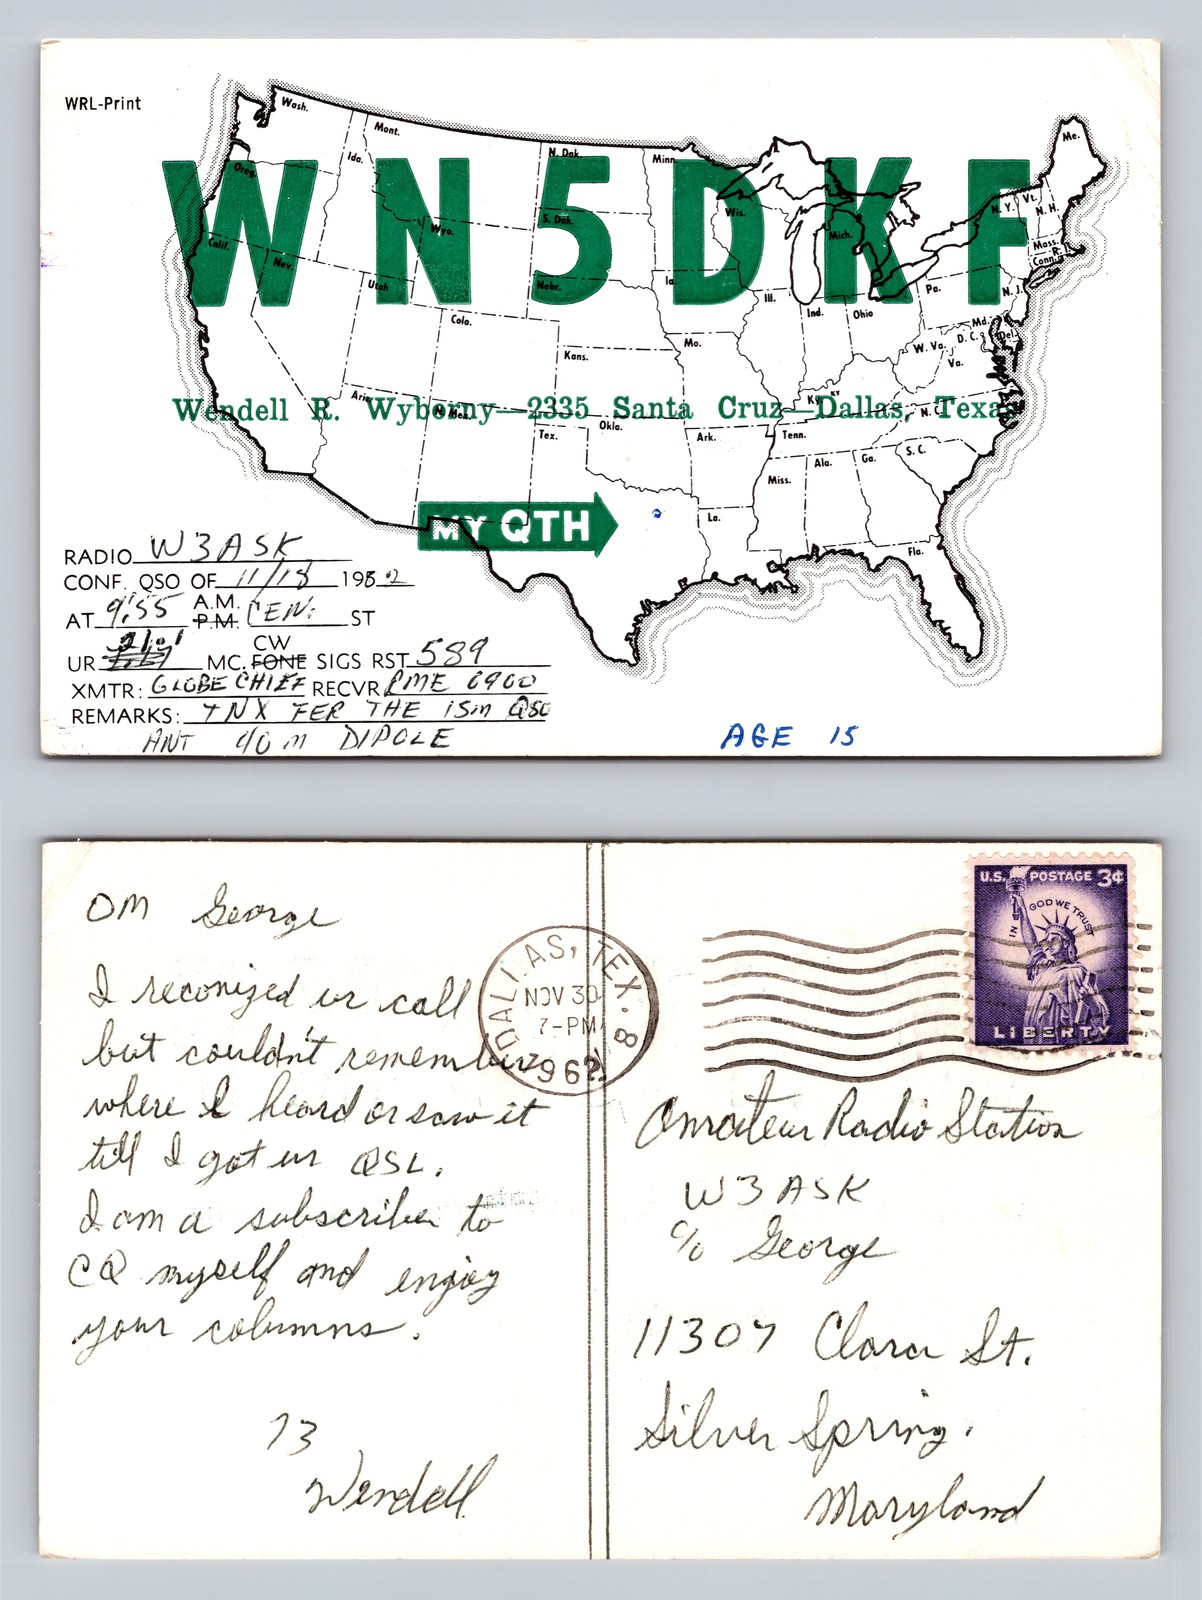 WRL-Print
Wash.
Mont.
N. Dak.
Minn.
Me.
Ida.
Oreg.
WN5DKF
Wis.
Mich.
N. Y.
Vt.
N. H.
S. Dak.
Wyo.
Mass.
R.
Conn.
Calif.
Nev.
Utah
Nebr.
Ia.
Ill.
Ind.
Ohio
Pa.
N. J.
Colo.
Md.
D. C.
Del.
W. Va.
Va.
Kans.
Mo.
Ky.
KY
Ariz.
N. Mex.
N. C.
Wendell R. Wyborny—2335 Santa Cruz—Dallas, Texas
Okla.
Tex.
Ark.
Tenn.
S. C.
Miss.
Ala.
Ga.
La.
Fla.
MY QTH
RADIO W3ASK
CONF. QSO OF 11/18 1962
AT 9:55 A.M. P.M. CEN. ST
UR 21.1 MC. CW FONE SIGS RST 589
XMTR: GLOBE CHIEF RECVR PME 6900
REMARKS: TNX FER THE 15m QSO
ANT 40 m DIPOLE
AGE 15
U.S. POSTAGE 3¢
IN GOD WE TRUST
LIBERTY
DALLAS, TEX. 8
NOV 30
7-PM
1962
OM George
I reconized ur call
but couldn't remember
where I heard or saw it
till I got ur QSL.
I am a subscriber to
CQ myself and enjoy
your columns.
73
Wendell
Amateur Radio Station
W3ASK
c/o George
11307 Clara St.
Silver Spring,
Maryland